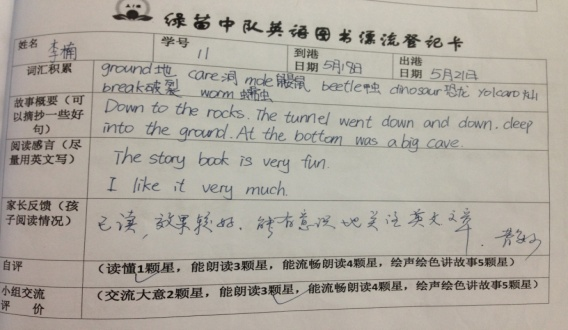 绿苗中队英语图书漂流登记卡
姓名 李楠 学号 11 到港日期 5月18日 出港日期 5月21日
词汇积累 ground地 cave洞 mole鼹鼠 beetle虫 dinosaur恐龙 volcano火山
break破裂 worm 蠕虫
故事概要(可以摘抄一些好句) Down to the rocks. The tunnel went down and down. deep
into the ground. At the bottom was a big cave.
阅读感言(尽量用英文写) The story book is very fun.
I like it very much.
家长反馈(孩子阅读情况) 已读,效果较好.能有意识地关注英文文章.
自评 (读懂1颗星,能朗读3颗星,能流畅朗读4颗星,绘声绘色讲故事5颗星)
小组交流评价 (交流大意2颗星,能朗读3颗星,能流畅朗读4颗星,绘声绘色讲故事5颗星)